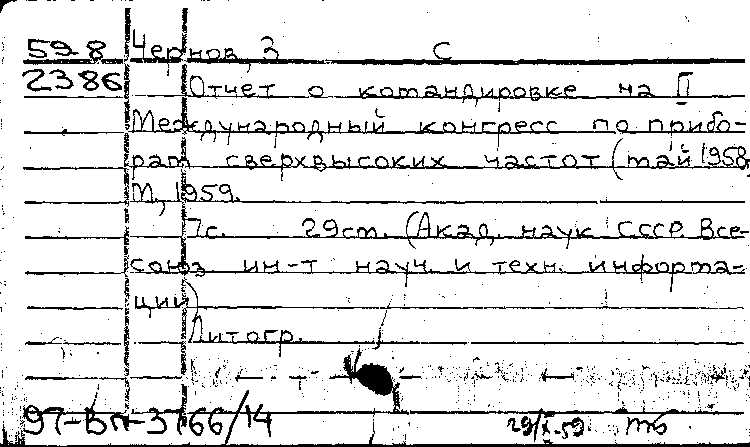 59-8 Чернов, З С
2386 Отчет о командировке на II
Международный конгресс по прибо-
рам сверхвысоких частот (май 1958,
М, 1959.
7с. 29см. (Акад. наук СССР. Все-
союз ин-т науч. и техн. информа-
ции)
Литогр.
97-ВП-3766/14
29/X-59